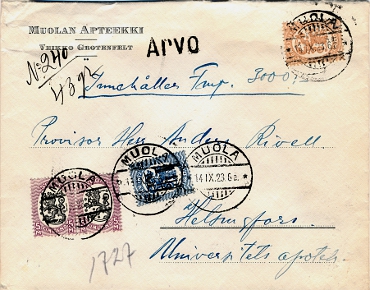 MUOLAN APTEEKKI
VEIKKO GROTENFELT
ARVO
No 240
43 gr
Innehåller Fmk. 3000
Provisor Herr Anders Rivell
MUOLA
MUOLA
14.IX.23
MUOLA
MUOLA
Helsingfors.
Univer apotek.
1727